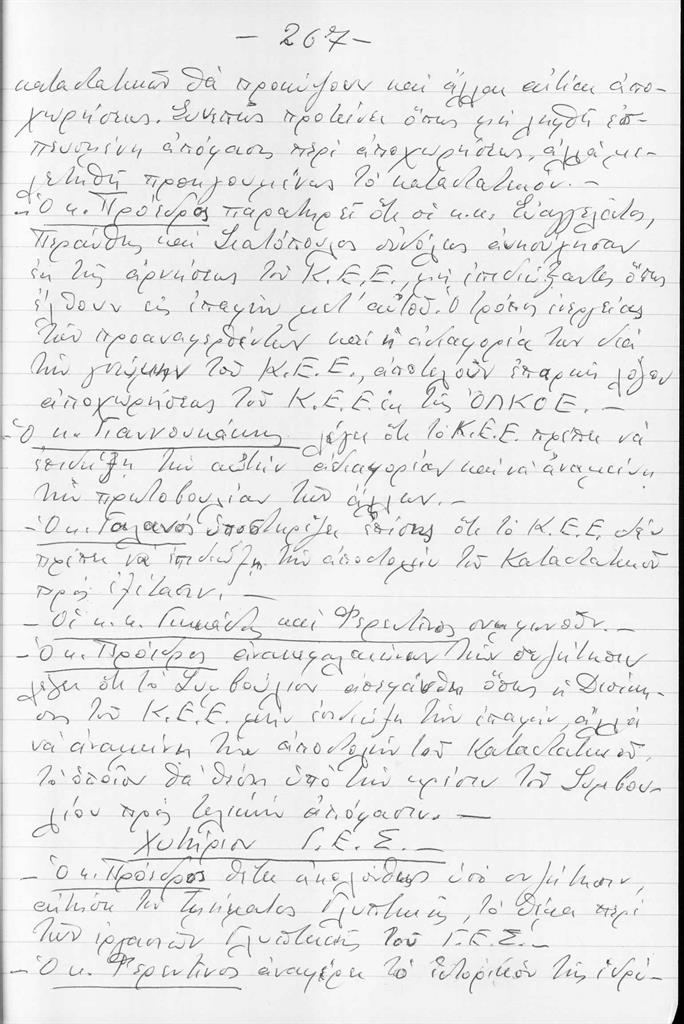 - 267 -
καταστατικοῦ θά προκύψουν καί ἄλλαι αἰτίαι ἀπο-
χωρήσεως. Συνεπῶς προτείνει ὅπως μή ληφθῆ ἐσ-
πευσμένη ἀπόφασις περί ἀποχωρήσεως, ἀλλά με-
λετηθῆ προηγουμένως τό καταστατικόν. -
- Ὁ κ. Πρόεδρος παρατηρεῖ ὅτι οἱ κ.κ. Εὐαγγελάτος,
Περάνθης καί Σιατόπουλος οὐδόλως ἀνησύχησαν
ἐκ τῆς ἀρνήσεως τοῦ Κ.Ε.Ε., μή ἐπιδιώξαντες ὅπως
ἔλθουν εἰς ἐπαφήν μετ' αὐτοῦ. Ὁ τρόπος ἐνεργείας
τῶν προαναφερθέντων καί ἡ ἀδιαφορία των διά
τήν γνώμην τοῦ Κ.Ε.Ε., ἀποτελοῦν ἐπαρκῆ λόγον
ἀποχωρήσεως τοῦ Κ.Ε.Ε. ἐκ τῆς ΟΛΚΟΕ. -
- Ὁ κ. Γιαννουκάκης λέγει ὅτι τό Κ.Ε.Ε. πρέπει νά
ἐπιδείξη τήν αὐτήν ἀδιαφορίαν καί νά ἀναμείνη
τήν πρωτοβουλίαν τῶν ἄλλων. -
- Ὁ κ. Γαλανός ὑποστηρίζει ἐπίσης ὅτι τό Κ.Ε.Ε. δέν
πρέπει νά ἐπιδιώξη τήν ἀποστολήν τοῦ Καταστατικοῦ
πρός ἐξέτασιν. -
- Οἱ κ.κ. καί Φερεντῖνος συμφωνοῦν. -
- Ὁ κ. Πρόεδρος ἀνακεφαλαιώνων τήν συζήτησιν
λέγει ὅτι τό Συμβούλιον ἀπεφάνθη ὅπως ἡ Διοίκη-
σις τοῦ Κ.Ε.Ε. μήν ἐπιδιώξη τήν ἐπαφήν, ἀλλά
νά ἀναμείνη τήν ἀποστολήν τοῦ Καταστατικοῦ,
τό ὁποῖον θά θέση ὑπό τήν κρίσιν τοῦ Συμβου-
λίου πρός τελικήν ἀπόφασιν. -
Χυτήριον Γ.Ε.Σ. -
- Ὁ κ. Πρόεδρος θέτει ἀκολούθως ὑπό συζήτησιν,
αἰτήσει τοῦ τμήματος Γλυπτικῆς, τό θέμα περί
τῶν ἐργασιῶν Γλυπτικῆς τοῦ Γ.Ε.Σ. -
- Ὁ κ. Φερεντῖνος ἀναφέρει τό ἱστορικόν τῆς ἱδρύ-